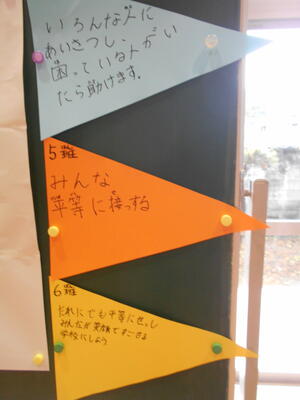 いろんな人に
あいさつし、
困っている人がい
たら助けます。
5難
みんな
平等に接っする
6難
だれにでも平等にせっし
みんなが笑顔ですごせる
学校にしよう